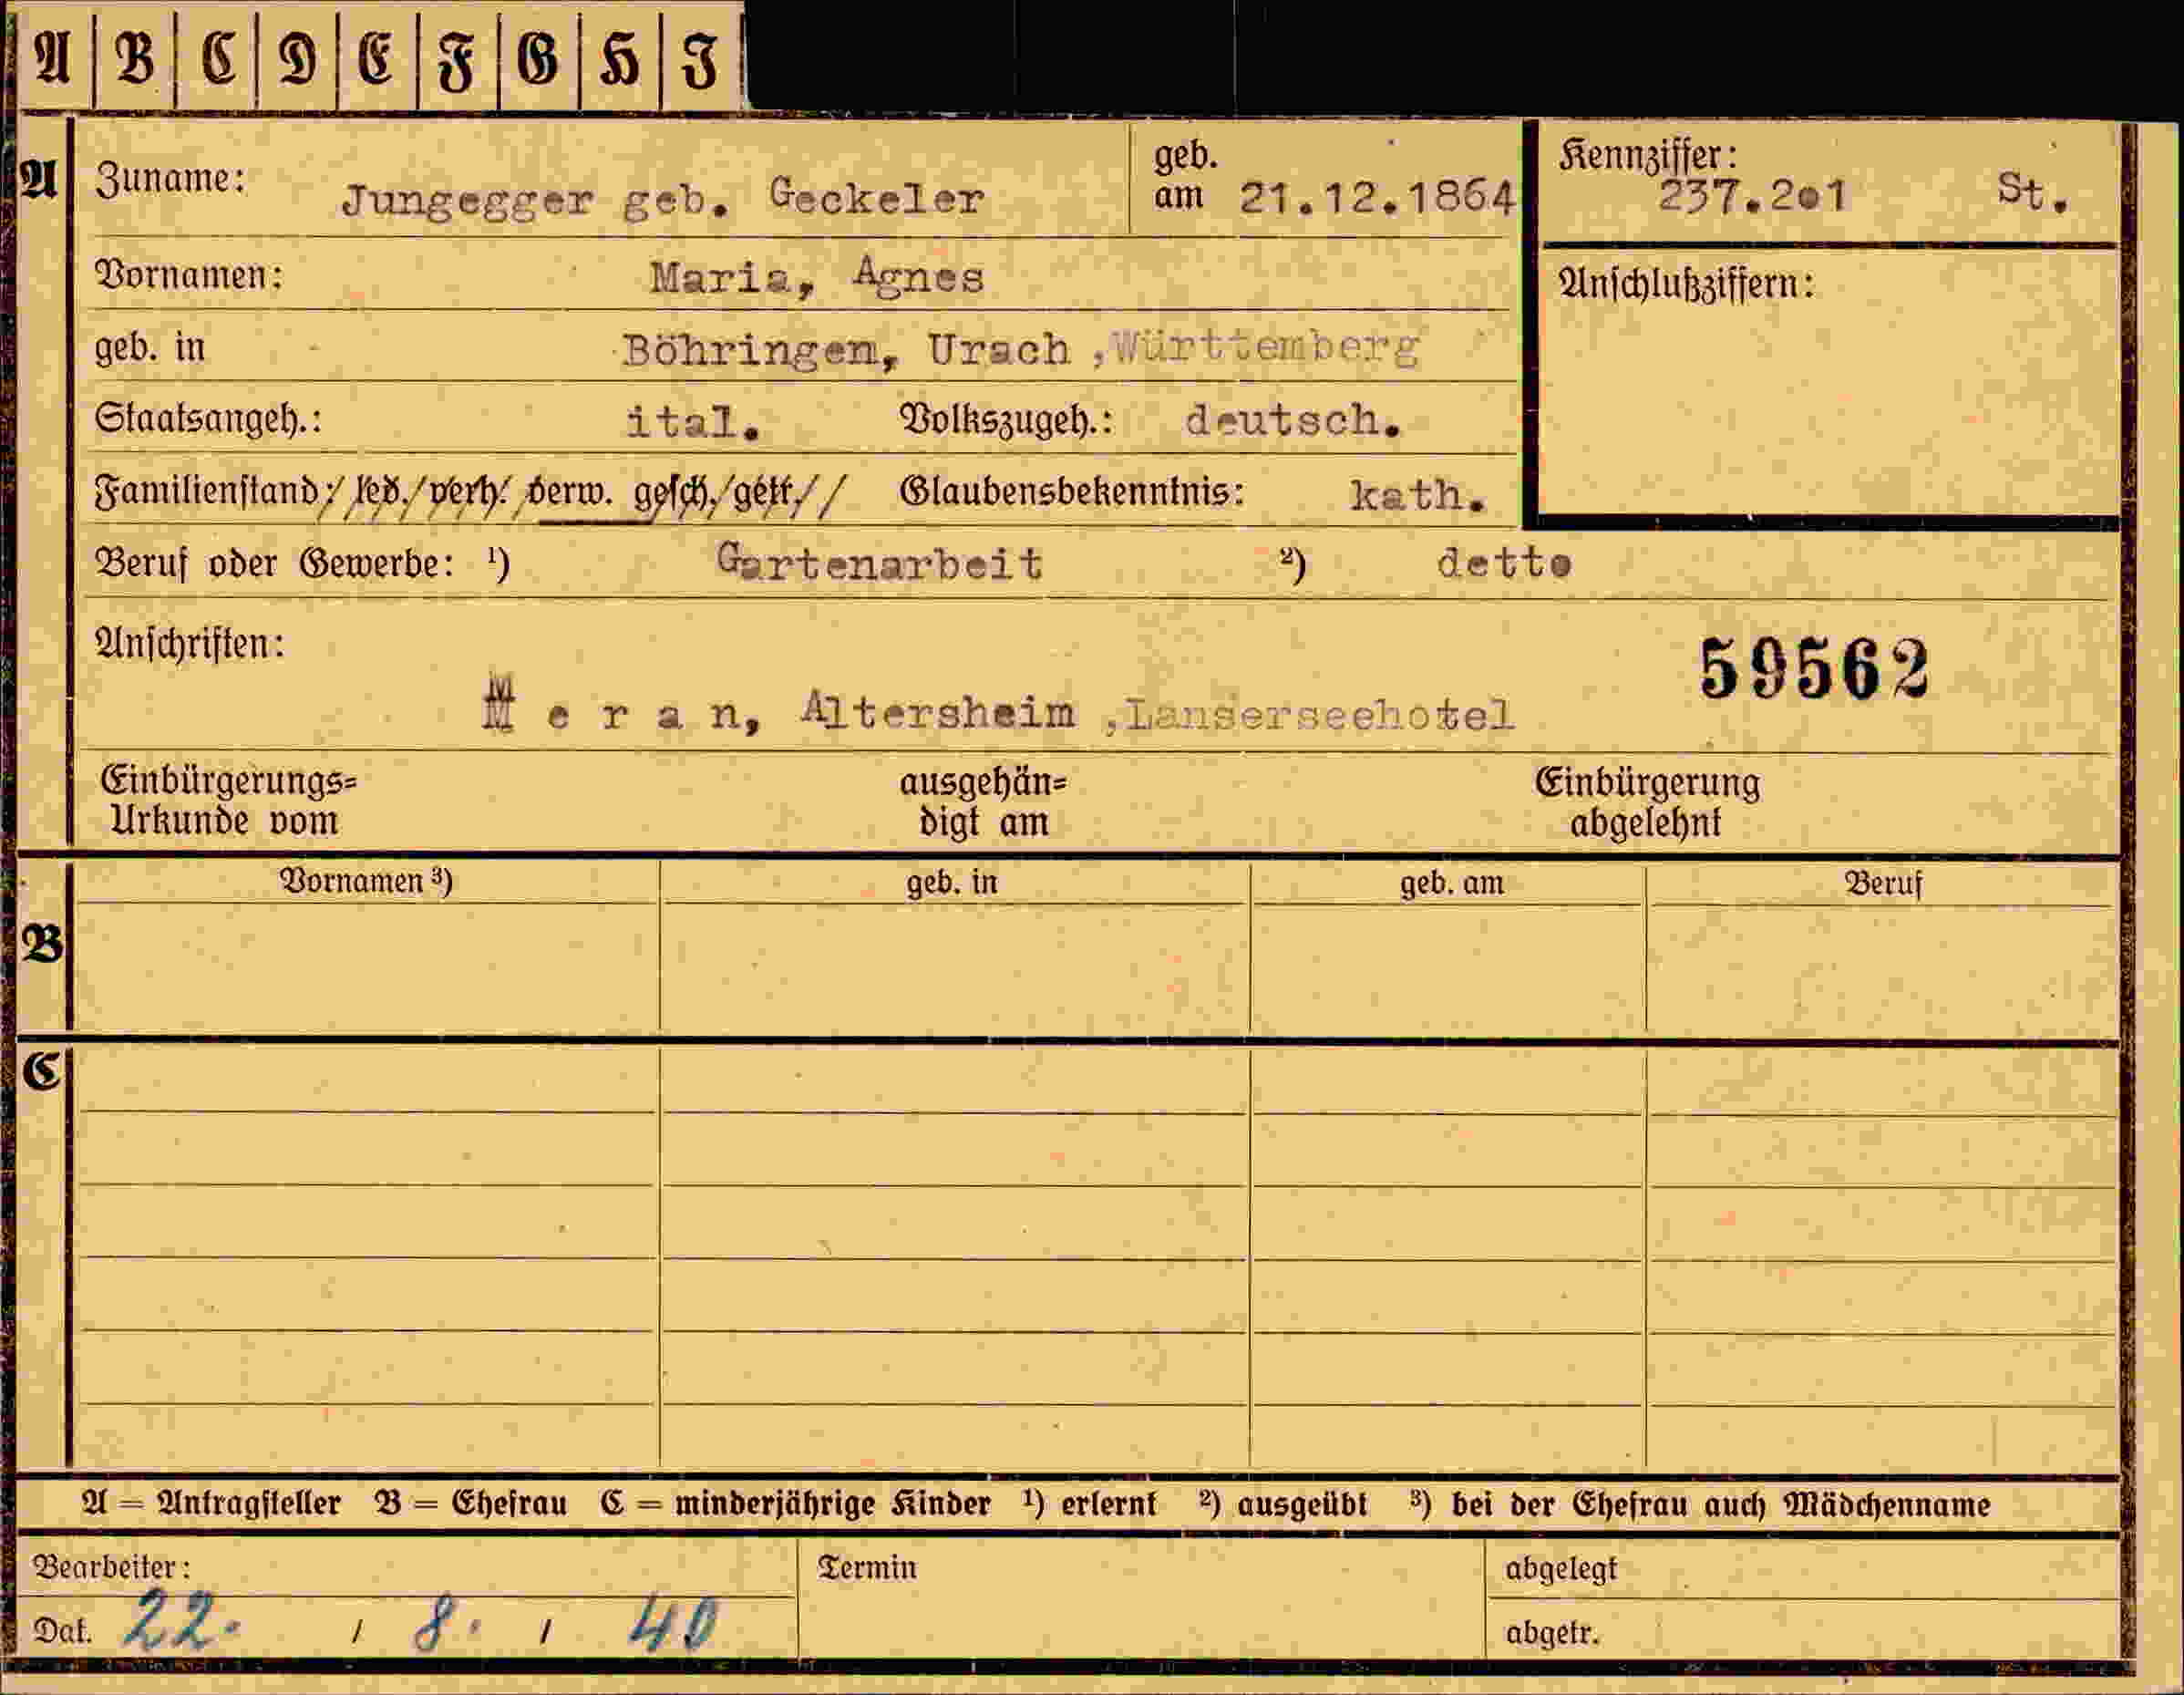 A B C D E F G H I
A Zuname: Jungegger geb. Geckeler geb. am 21.12.1864 Kennziffer: 237.2o1 St.
Vornamen: Maria, Agnes Anschlußziffern:
geb. in Böhringen, Urach ,Württemberg
Staatsangeh.: ital. Volkszugeh.: deutsch.
Familienstand: led. verh. verw. gesch. getr. Glaubensbekenntnis: kath.
Beruf oder Gewerbe: ¹) Gartenarbeit ²) detto
Anschriften: 59562
M e r a n, Altersheim ,Lanserseehotel
Einbürgerungs= ausgehän= Einbürgerung
Urkunde vom digt am abgelehnt
Vornamen ³) geb. in geb. am Beruf
B
C
A = Antragsteller B = Ehefrau C = minderjährige Kinder ¹) erlernt ²) ausgeübt ³) bei der Ehefrau auch Mädchenname
Bearbeiter: Termin abgelegt
Dat. 22. / 8. / 40 abgetr.